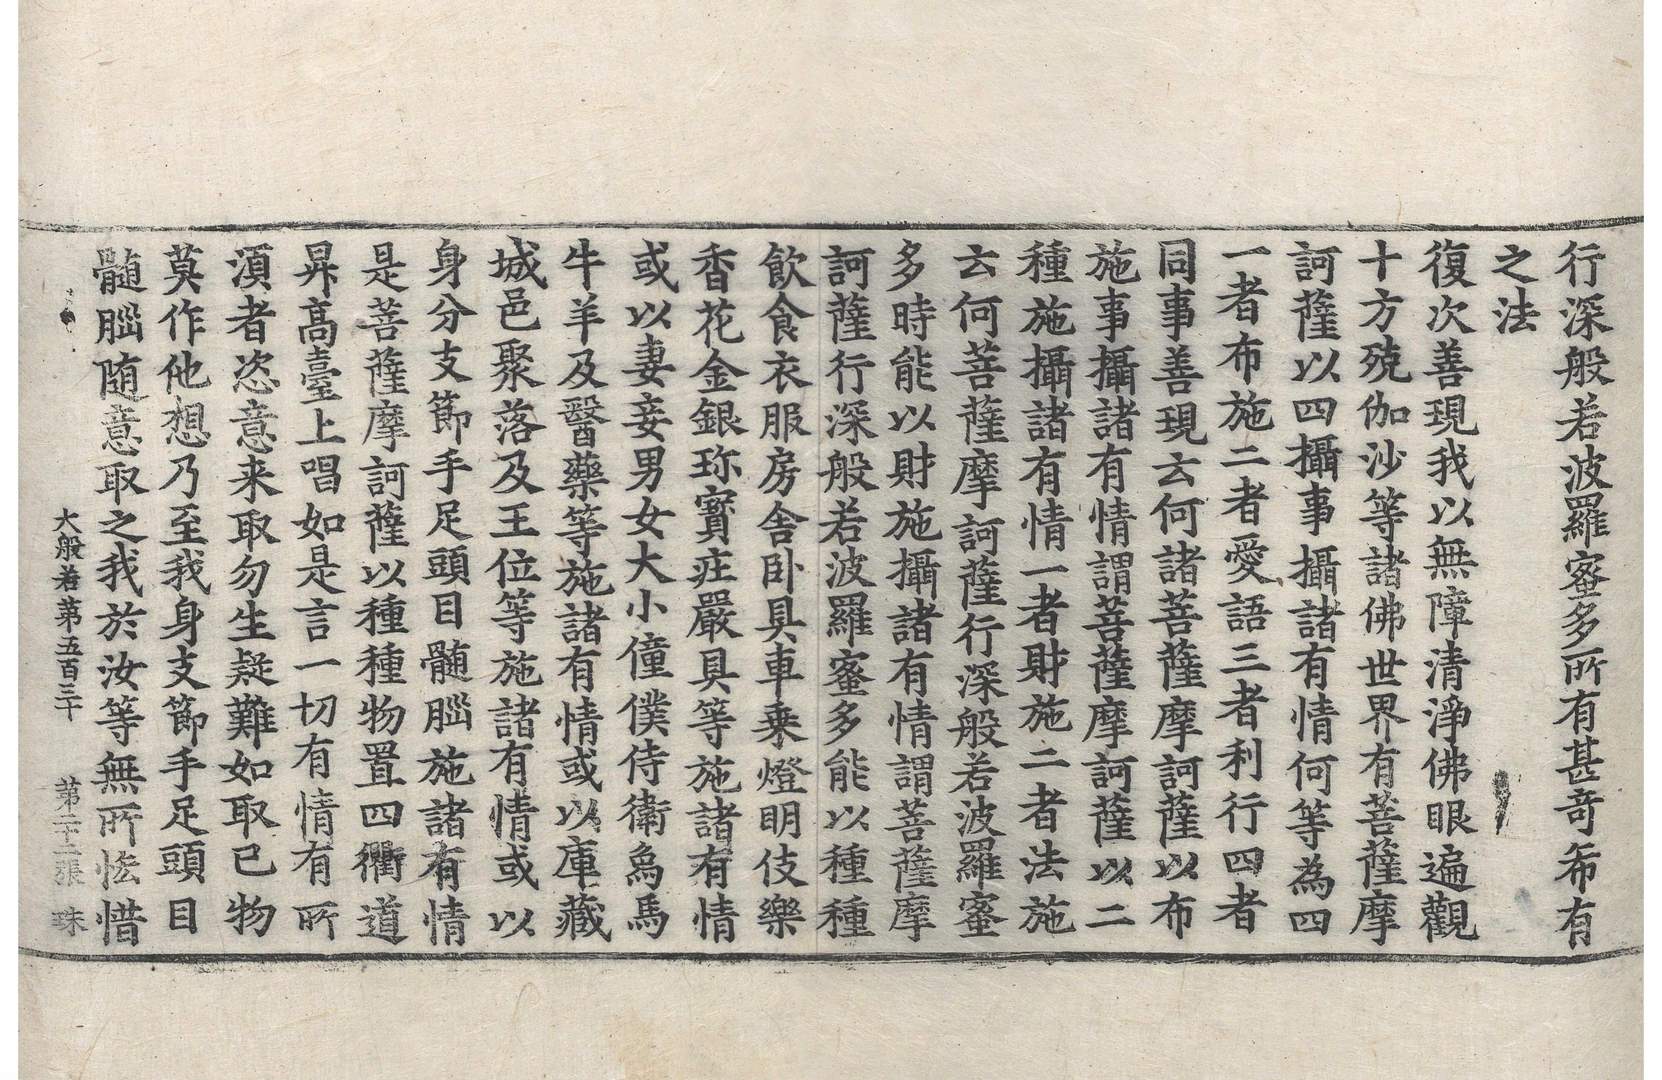 行深般若波羅蜜多所有甚竒希有
之法
復次善現我以無障清淨佛眼遍觀
十方殑伽沙等諸佛世界有菩薩摩
訶薩以四攝事攝諸有情何等為四
一者布施二者愛語三者利行四者
同事善現云何諸菩薩摩訶薩以布
施事攝諸有情謂菩薩摩訶薩以二
種施攝諸有情一者財施二者法施
云何菩薩摩訶薩行深般若波羅蜜
多時能以財施攝諸有情謂菩薩摩
訶薩行深般若波羅蜜多能以種種
飲食衣服房舎卧具車乗燈明伎樂
香花金銀珎寳莊嚴具等施諸有情
或以妻妾男女大小僮僕侍衛烏馬
牛羊及醫藥等施諸有情或以庫藏
城邑聚落及王位等施諸有情或以
身分支節手足頭目髓腦施諸有情
是菩薩摩訶薩以種種物置四衢道
昇髙臺上唱如是言一切有情有所
湏者恣意来取勿生疑難如取已物
莫作他想乃至我身支節手足頭目
髓腦随意取之我於汝等無所恡惜
大般若第五百三十 第二十二張 珠